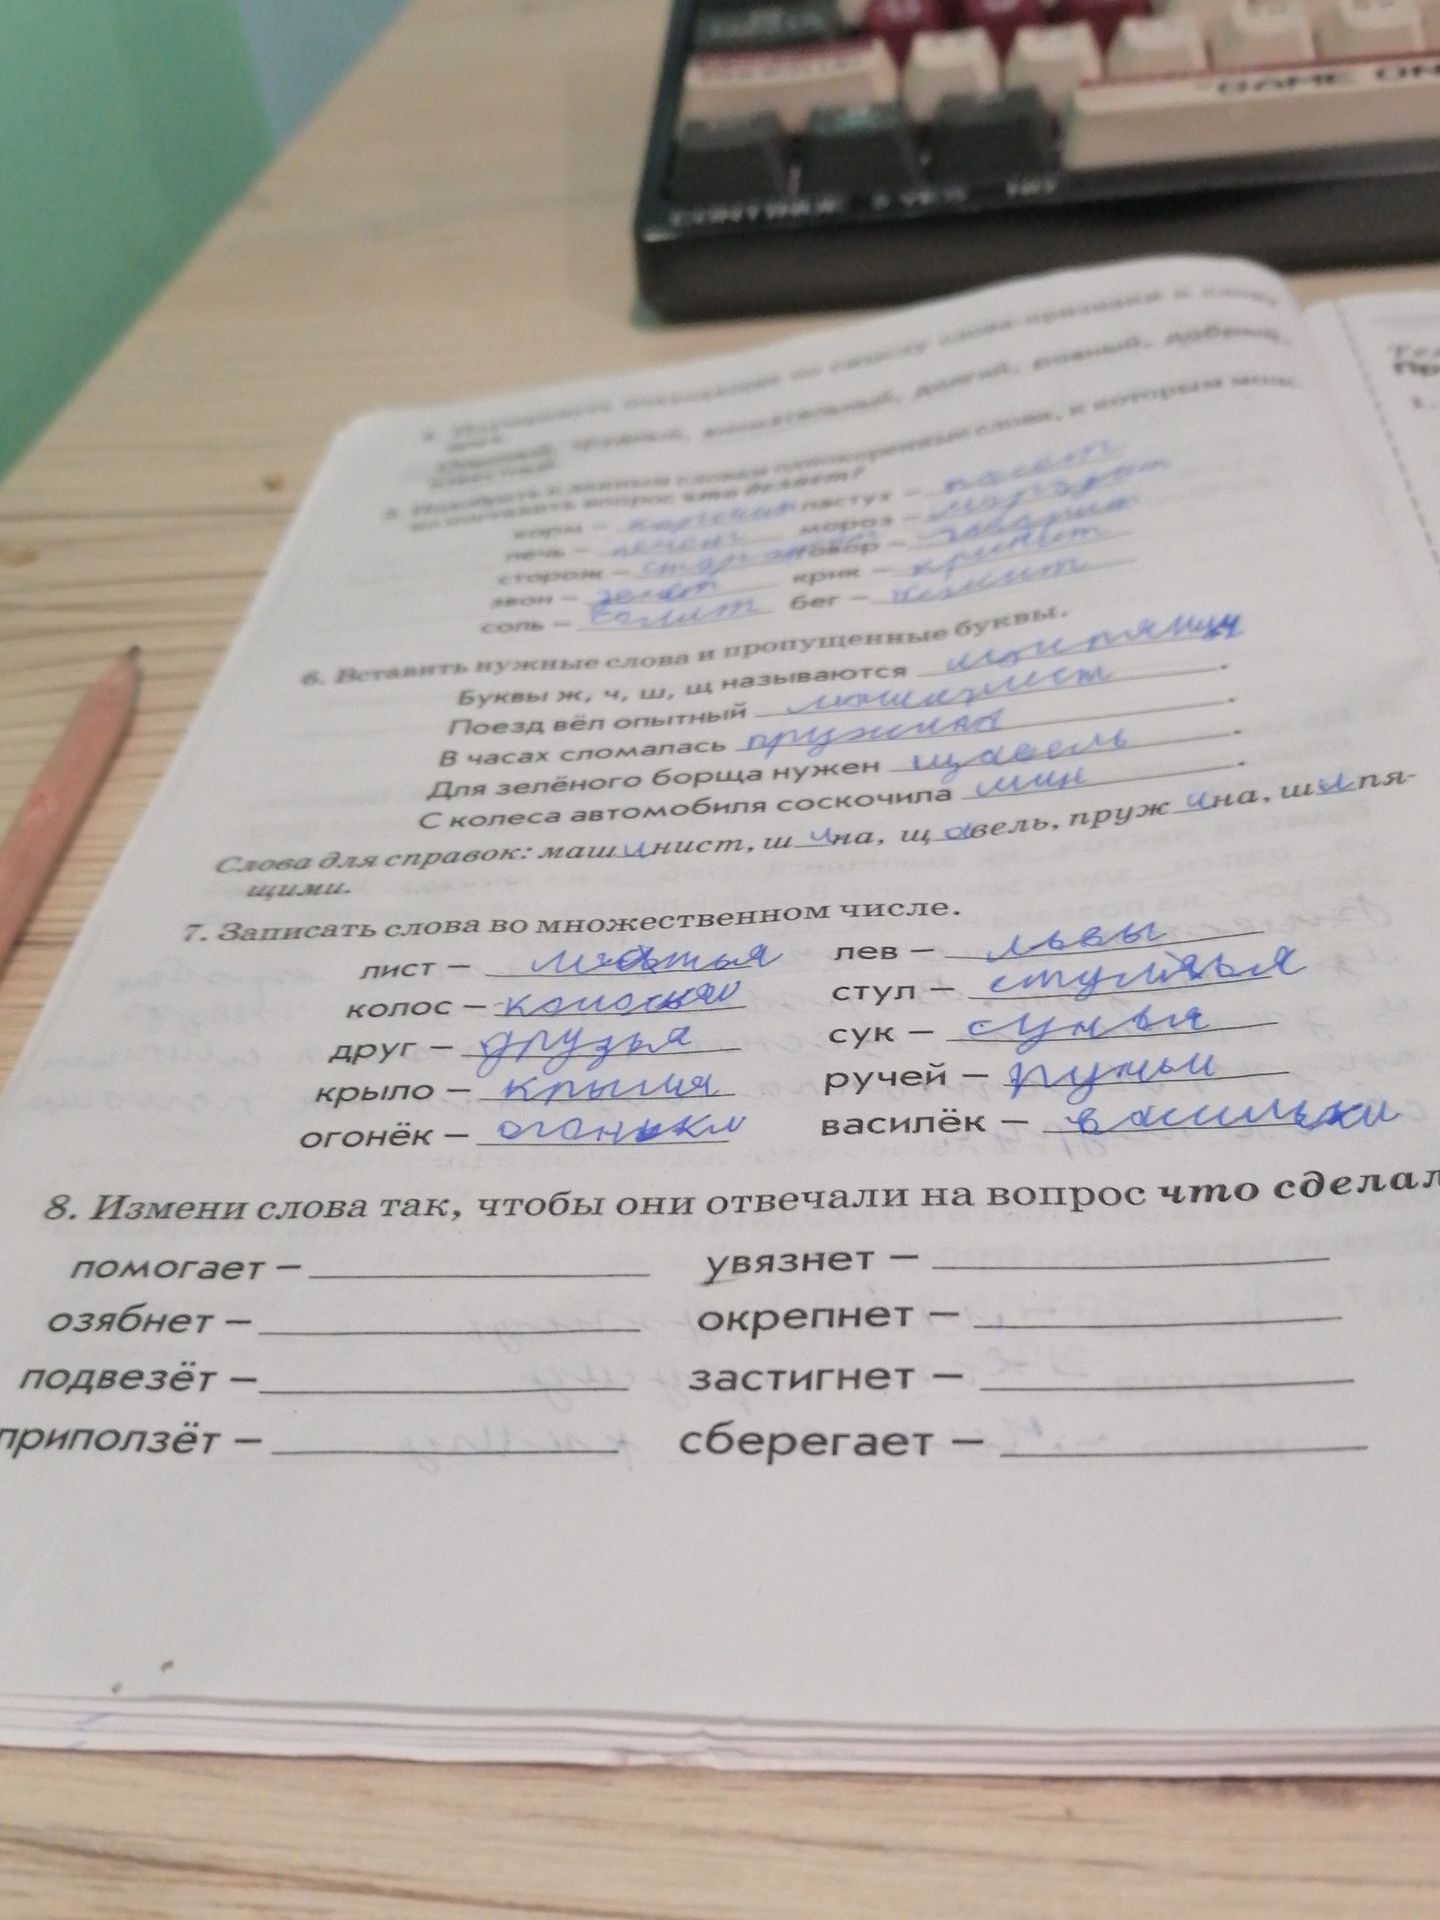 GAME ON
CONTINUE
5. Подобрать к данным словам однокоренные слова, к которым мож-
но поставить вопрос что делает?
корм – кормит пастух – пасёт
печь – печёт мороз – морозит
сторож – говор – говорит
звон – крик – кричит
соль – солит бег – бежит
6. Вставить нужные слова и пропущенные буквы.
Буквы ж, ч, ш, щ называются
Поезд вёл опытный машинист.
В часах сломалась пружина.
Для зелёного борща нужен щавель.
С колеса автомобиля соскочила.
Слова для справок: машинист, шина, щавель, пружина, шипя-
щими.
7. Записать слова во множественном числе.
лист – листья лев – львы
колос – колосья стул – стулья
друг – друзья сук – сучья
крыло – крылья ручей – ручьи
огонёк – огоньки василёк – васильки
8. Измени слова так, чтобы они отвечали на вопрос что сделал
помогает – увязнет –
озябнет – окрепнет –
подвезёт – застигнет –
приползёт – сберегает –